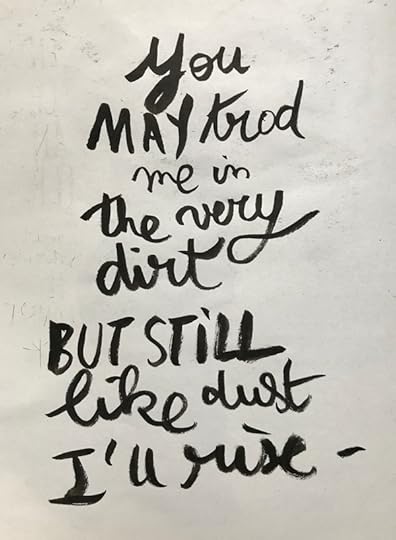 You
MAY trod
me in
the very
dirt
BUT STiLL
like dust
I'll rise -